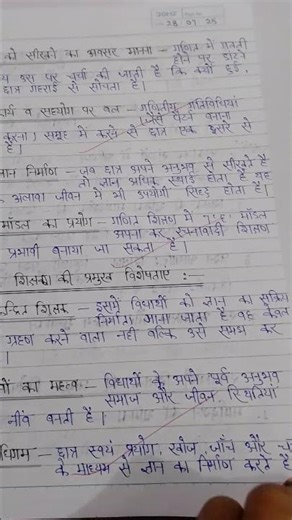 28 07 25
को सीखने का अवसर मानना – गणित में गलती
होने पर डाटने
उस पर चर्चा की जाती है कि क्यों हुई,
छात्र गहराई से सोचता है।
कार्य व सहयोग पर बल – गणितीय गतिविधियां
(जैसे पैटर्न बनाना
करना) समूह में करने से छात्र एक दूसरे से
है।
ज्ञान निर्माण – जब छात्र अपने अनुभव से सीखते है
तो ज्ञान अधिक स्थाई होता है यह
अलावा जीवन में भी उपयोगी सिद्ध होता है।
मॉडल का प्रयोग – गणित शिक्षण में मॉडल
अपना कर रचनावादी शिक्षण
प्रभावी बनाया जा सकता है।
शिक्षण की प्रमुख विशेषताए :—
केन्द्रित शिक्षक – इसमें विद्यार्थी को ज्ञान का सक्रिय
निर्माता माना जाता है वह केवल
ग्रहण करने वाला नही बल्कि उसे समझ कर
का महत्व – विद्यार्थी के अपने पूर्व अनुभव
समाज और जीवन स्थितियां
नींव बनती है।
धिगम – छात्र स्वयं प्रयोग, खोज, जाँच और
के माध्यम से ज्ञान का निर्माण करते है